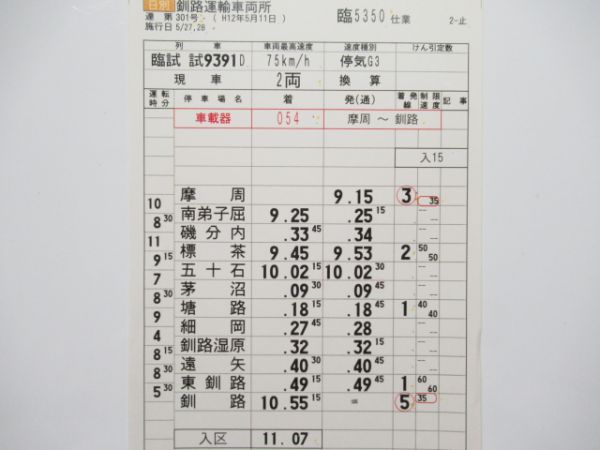 日別 釧路運輸車両所
達 第 301号 ・ ( H12年5月11日 ) 臨5350仕業 2-止
施行日 5/27,28
列 車 車両最高速度 速度種別 けん引定数
臨試 試9391D 75km/h 停気G3
現 車 2両 換 算
運転時分 停車場名 着 発(通) 着発線 制限速度 記事
車載器 054 摩周 ～ 釧路
入15
摩周 9.15 3 35
10
南弟子屈 9.25 .25 15
8 30
磯分内 .33 45 .34
11
標茶 9.45 9.53 2 50 50
9 15
五十石 10.02 15 10.02 30
7
茅沼 .09 30 .09 45
8 30
塘路 .18 15 .18 45 1 40 40
9
細岡 .27 45 .28
4
釧路湿原 .32 .32 15
8 15
遠矢 .40 30 .40 45
8 30
東釧路 .49 15 .49 45 1 60 60
5 30
釧路 10.55 15 = 5 35
入区 11.07